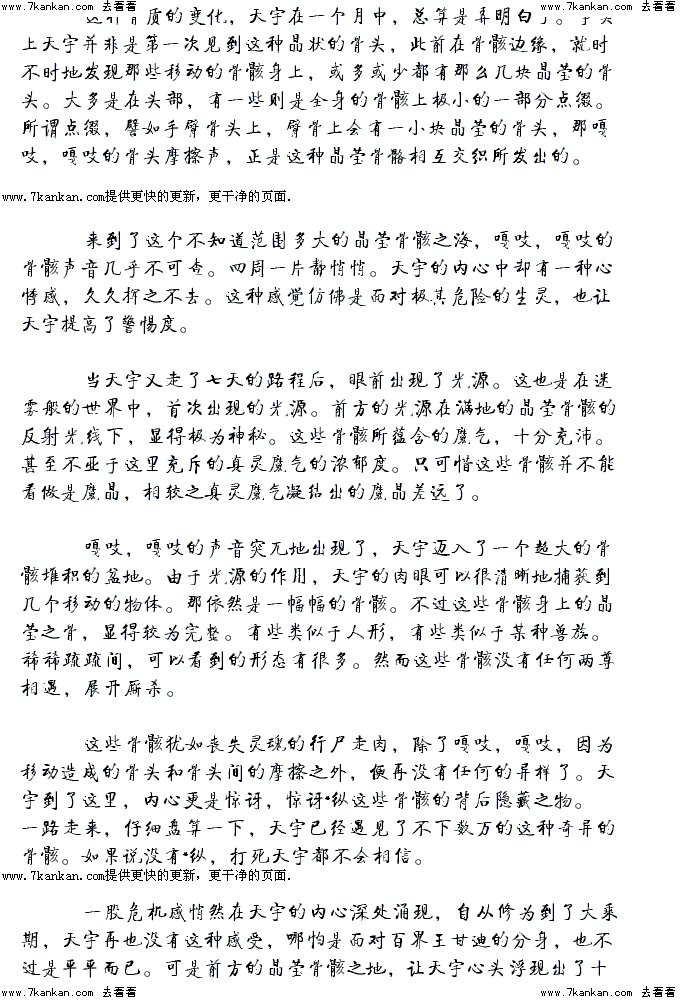 www.7kankan.com 去看看 www.7kankan.com 去看看 www.7kankan.com 去看看
质的变化，天宇在一个月中，总算是弄明白了。
上天宇并非是第一次见到这种晶状的骨头，此前在骨骸边缘，就时
不时地发现那些移动的骨骸身上，或多或少都有那么几块晶莹的骨
头。大多是在头部，有一些则是全身的骨骸上极小的一部分点缀。
所谓点缀，譬如手臂骨头上，臂骨上会有一小块晶莹的骨头，那嘎
吱，嘎吱的骨头摩擦声，正是这种晶莹骨骼相互交织所发出的。
www.7kankan.com提供更快的更新，更干净的页面.
来到了这个不知道范围多大的晶莹骨骸之海，嘎吱，嘎吱的
骨骸声音几乎不可查。四周一片静悄悄。天宇的内心中却有一种心
悸感，久久挥之不去。这种感觉仿佛是面对极其危险的生灵，也让
天宇提高了警惕度。
当天宇又走了七天的路程后，眼前出现了光源。这也是在迷
雾般的世界中，首次出现的光源。前方的光源在满地的晶莹骨骸的
反射光线下，显得极为神秘。这些骨骸所蕴含的魔气，十分充沛。
甚至不亚于这里充斥的真灵魔气的浓郁度。只可惜这些骨骸并不能
看做是魔晶，相较之真灵魔气凝结出的魔晶差远了。
嘎吱，嘎吱的声音突兀地出现了，天宇迈入了一个超大的骨
骸堆积的盆地。由于光源的作用，天宇的肉眼可以很清晰地捕获到
几个移动的物体。那依然是一幅幅的骨骸。不过这些骨骸身上的晶
莹之骨，显得较为完整。有些类似于人形，有些类似于某种兽族。
稀稀疏疏间，可以看到的形态有很多。然而这些骨骸没有任何两尊
相遇，展开厮杀。
这些骨骸犹如丧失灵魂的行尸走肉，除了嘎吱，嘎吱，因为
移动造成的骨头和骨头间的摩擦之外，便再没有任何的异样了。天
宇到了这里，内心更是惊讶，惊讶*纵这些骨骸的背后隐藏之物。
一路走来，仔细盘算一下，天宇已经遇见了不下数万的这种奇异的
骨骸。如果说没有*纵，打死天宇都不会相信。
www.7kankan.com提供更快的更新，更干净的页面.
一股危机感悄然在天宇的内心深处涌现，自从修为到了大乘
期，天宇再也没有这种感受，哪怕是面对百界王甘迪的分身，也不
过是平平而已。可是前方的晶莹骨骸之地，让天宇心头浮现出了十
www.7kankan.com 去看看 www.7kankan.com 去看看 www.7kankan.com 去看看